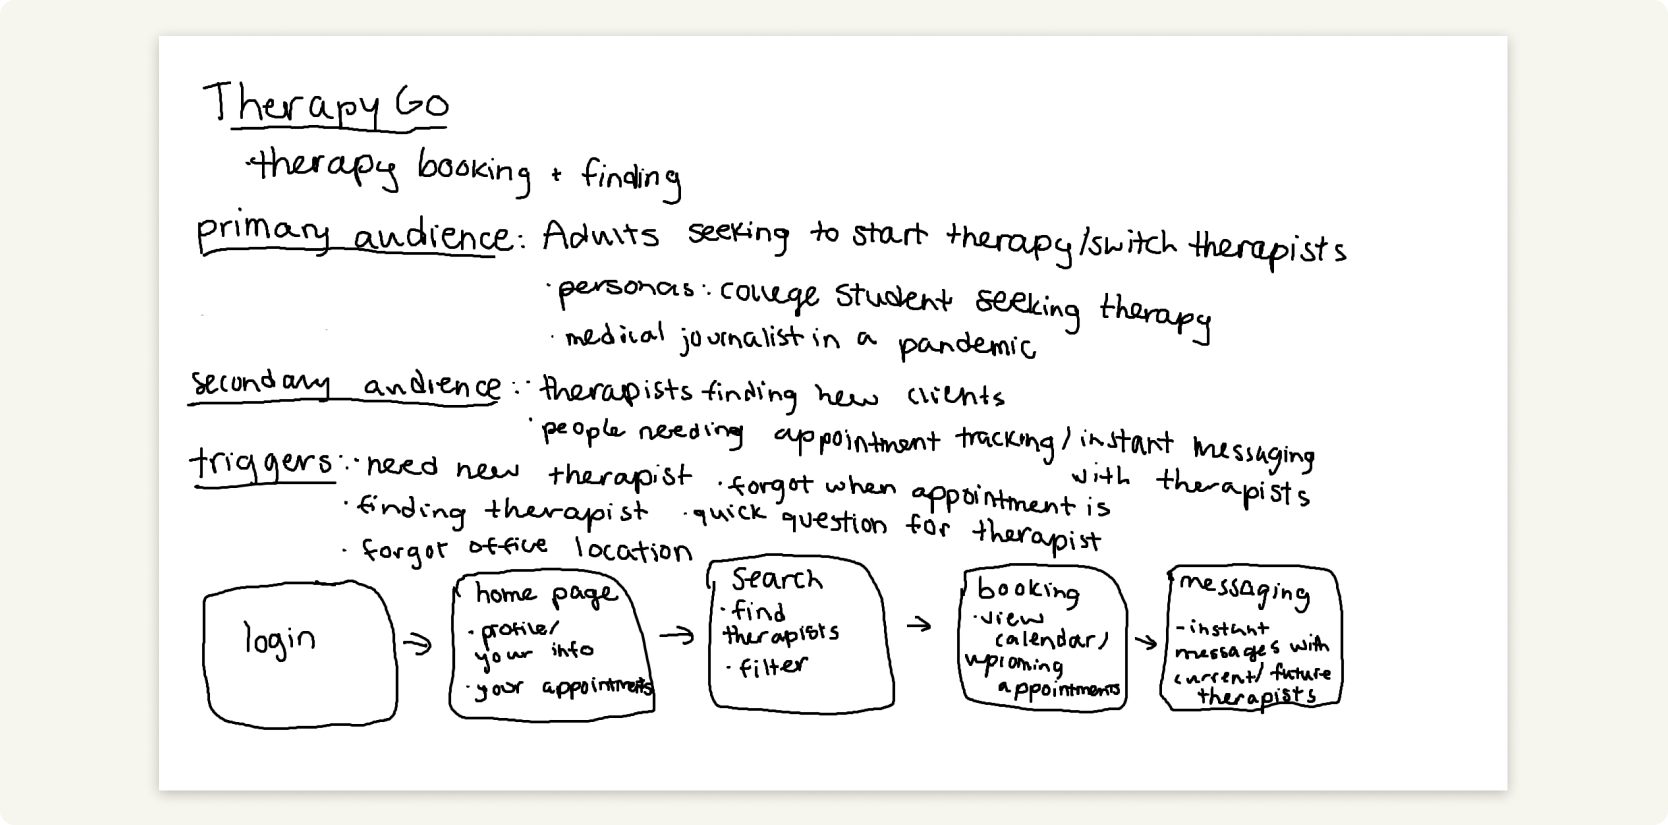 Therapy Go
·therapy booking + finding
primary audience: Adults seeking to start therapy/switch therapists
·personas: college student seeking therapy
·medical journalist in a pandemic
secondary audience: ·therapists finding new clients
·people needing appointment tracking/instant messaging
with therapists
triggers: ·need new therapist ·forgot when appointment is
·finding therapist ·quick question for therapist
·forgot office location
login
→
home page
·profile/
your info
·your appointments
→
search
·find
therapists
·filter
→
booking
·view
calendar/
upcoming
appointments
→
messaging
-instant
messages with
current/future
therapists